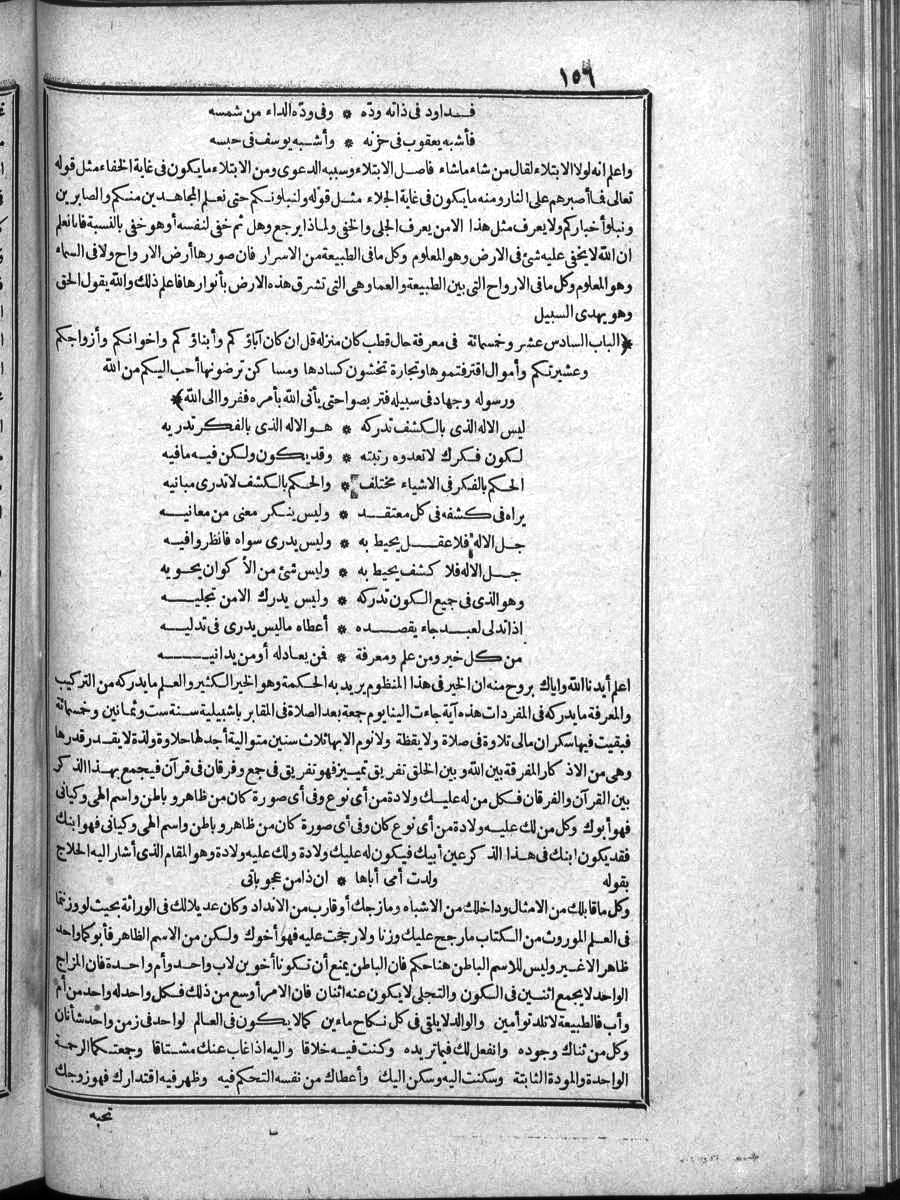 ١٥٦
فــداود فى ذاته ودّه * وفى ودّه الداء من شمسه
فأشبه يعقوب فى حزنه * وأشــبه يوسف فى حبسه
واعلم انه لولا الابتلاء لقال من شاء ماشاء فاصل الابتلاء وسببه الدعوى ومن الابتلاء ما يكون فى غاية الخفاء مثل قوله
تعالى فما أصبرهم على النار ومنه ما يكون فى غاية الجلاء مثل قوله ولنبلونكم حتى نعلم المجاهدين منكم والصابرين
ونبلوا أخباركم ولا يعرف مثل هذا الا من يعرف الجلى والخفى ولماذا يرجع وهل ثم خفى لنفسه أو هو خفى بالنسبة فانا نعلم
ان الله لا يخفى عليه شئ فى الارض وهو المعلوم وكل ما فى الطبيعة من الاسرار فان صورها أرض الارواح ولا فى السماء
وهو المعلوم وكل ما فى الارواح التى بين الطبيعة والعما وهى التى تشرق هذه الارض بأنوارها فاعلم ذلك والله يقول الحق
وهو يهدى السبيل
﴿الباب السادس عشر وخمسمائة فى معرفة حال قطب كان منزله قل ان كان آباؤكم وأبناؤكم واخوانكم وأزواجكم
وعشيرتكم وأموال اقترفتموها وتجارة تخشون كسادها ومساكن ترضونها أحب اليكم من الله
ورسوله وجهاد فى سبيله فتربصوا حتى يأتى الله بأمره ففروا الى الله﴾
ليس الاله الذى بالكشف تدركه * هو الاله الذى بالفكر تدريه
لكون فكرك لا تعدوه رتبته * وقد يكون ولكن فيه ما فيه
الحكم بالفكر فى الاشياء مختلف * والحكم بالكشف لا تدرى مبانيه
يراه فى كشفه فى كل معتقــد * وليس ينكر معنى من معانيــه
جل الاله فلا عقــل يحيط به * وليس يدرى سواه فانظروا فيه
جل الاله فلا كشف يحيط به * وليس شئ من الأكوان يحويه
وهو الذى فى جميع الكون تدركه * وليس يدرك الا من تجليــه
اذا تدلى لعبــد جاء يقصــده * أعطاه ما ليس يدرى فى تدليــه
من كل خبر ومن علم ومعرفة * فمن يعادله أو من يدانيــه
اعلم أيدنا الله واياك بروح منه ان الخبر فى هذا المنظوم يريد به الحكمة وهو الخير الكثير والعلم ما يدركه من التركيب
والمعرفة ما يدركه فى المفردات هذه آية جاءت الينا يوم جمعة بعد الصلاة فى المقابر باشبيلية سنة ست وثمانين وخمسمائة
فبقيت فيها سكران مالى تلاوة فى صلاة ولا يقظة ولا نوم الا بها ثلاث سنين متوالية أجد لها حلاوة ولذة لا يقدر قدرها
وهى من الاذكار المفرقة بين الله وبين الخلق تفريق تمييز فهو تفريق فى جمع وفرقان فى قرآن فيجمع بهذا الذكر
بين القرآن والفرقان فكل من له عليك ولادة من أى نوع وفى أى صورة كان من ظاهر وباطن واسم الهى وكيانى
فهو أبوك وكل من لك عليه ولادة من أى نوع كان وفى أى صورة كان من ظاهر وباطن واسم الهى وكيانى فهو ابنك
فقد يكون ابنك فى هذا الذكر عين أبيك فيكون له عليك ولادة ولك عليه ولادة وهو المقام الذى أشار اليه الحلاج
بقوله ولدت أمى أباها * ان ذا من عجوباتى
وكل ما قابلك من الامثال وداخلك من الاشباه ومازجك أو قارب من الانداد وكان عديلا لك فى الوراثة بحيث لو وزنتما
فى العلم الموروث من الكتاب ما رجح عليك وزنا ولا رجحت عليه فهو أخوك ولكن من الاسم الظاهر فأبوكما واحد
ظاهرا لا غير وليس للاسم الباطن هنا حكم فان الباطن يمنع أن تكونا أخوين لاب واحد وأم واحدة فان المزاج
الواحد لا يجمع اثنين فى الكون والتجلى لا يكون عنه اثنان فان الامر أوسع من ذلك فكل واحد له واحد من أم
وأب فالطبيعة لا تلد توأمين والوالد لا يلقى فى كل نكاح ماءين كما لا يكون فى العالم لواحد فى زمن واحد شأنان
وكل من ثناك وجوده وانفعل لك فيما تريده وكنت فيه خلاقا واليه اذا غاب عنك مشتاقا وجمعتكما الرحمة
الواحدة والمودة الثابتة وسكنت اليه وسكن اليك وأعطاك من نفسه التحكم فيه وظهر فيه اقتدارك فهو زوجك
تحبه